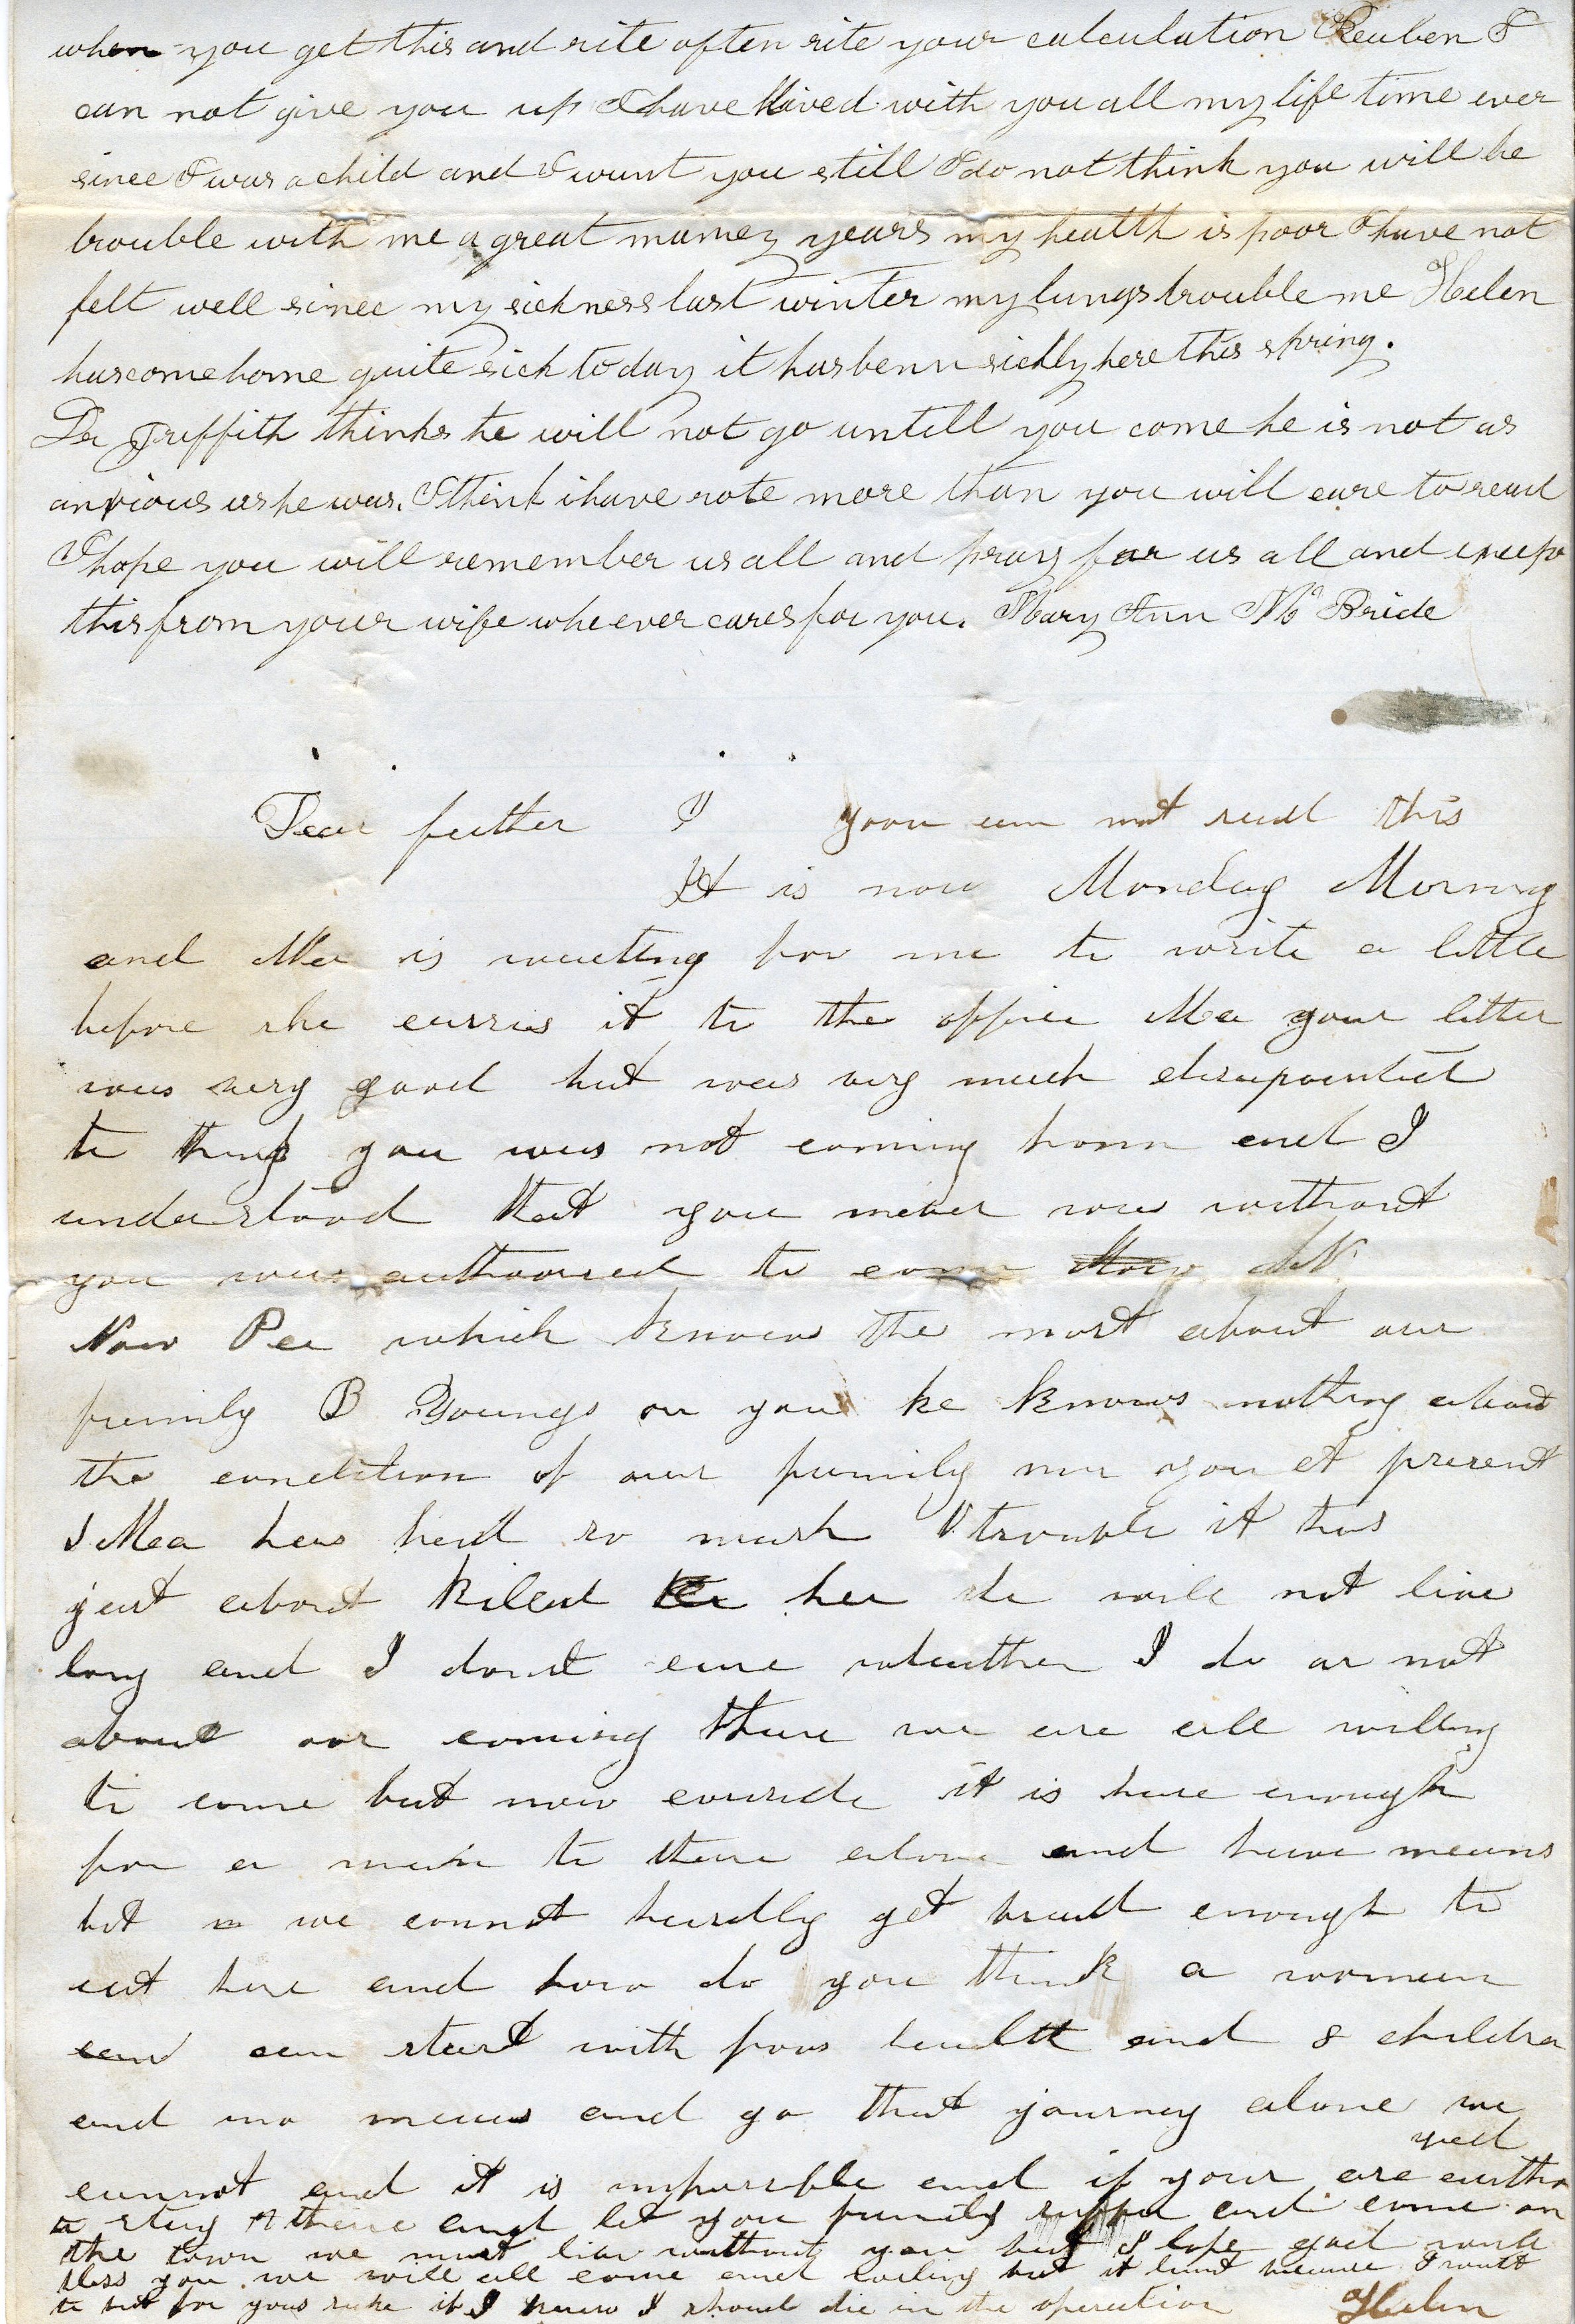 when you get this and rite often rite your calculation Reuben I
can not give you up I have lived with you all my life time ever
since I was a child and I want you still I do not think you will be
trouble with me a great maney years my health is poor I have not
felt well since my sickness last winter my lungs trouble me Helen
has come home quite sick to day it has benn sickly here this spring.
Dr Griffith thinks he will not go untill you come he is not as
anxious as he was. I think i have rote more than you will care to read
I hope you will remember us all and pray for us all and
this from your wife who ever cares for you. Mary Ann Mc Bride
Dear father I you can not read this
It is now Monday Morning
and Ma is waiting for me to write a little
before she carres it to the office Ma your letter
was very good but was very much disapointed
to think you was not coming home and I
understood that you never was without
you was authorised to come
Now Pa which knows the most about our
family B Youngs or you he knows nothing about
the condition of our family nor you at present
Ma has had so much trouble it has
just about killed her she will not live
long and I dont care wheather I do or not
about our coming there we are all willing
to come but now concide it is hare enough
for a man to there alone and have means
but we cannot hardly get bread enough to
eat here and how do you think a woman
can start with poor health and 8 children
and no means and go that journey alone we
cannot and it is impossible and if your are
to stay there and let you family suffer and come on
the town we must live without you but I hope god will
bless you we will all come and but it because I want
to but for your sake if I knew I should die in the operation Helen